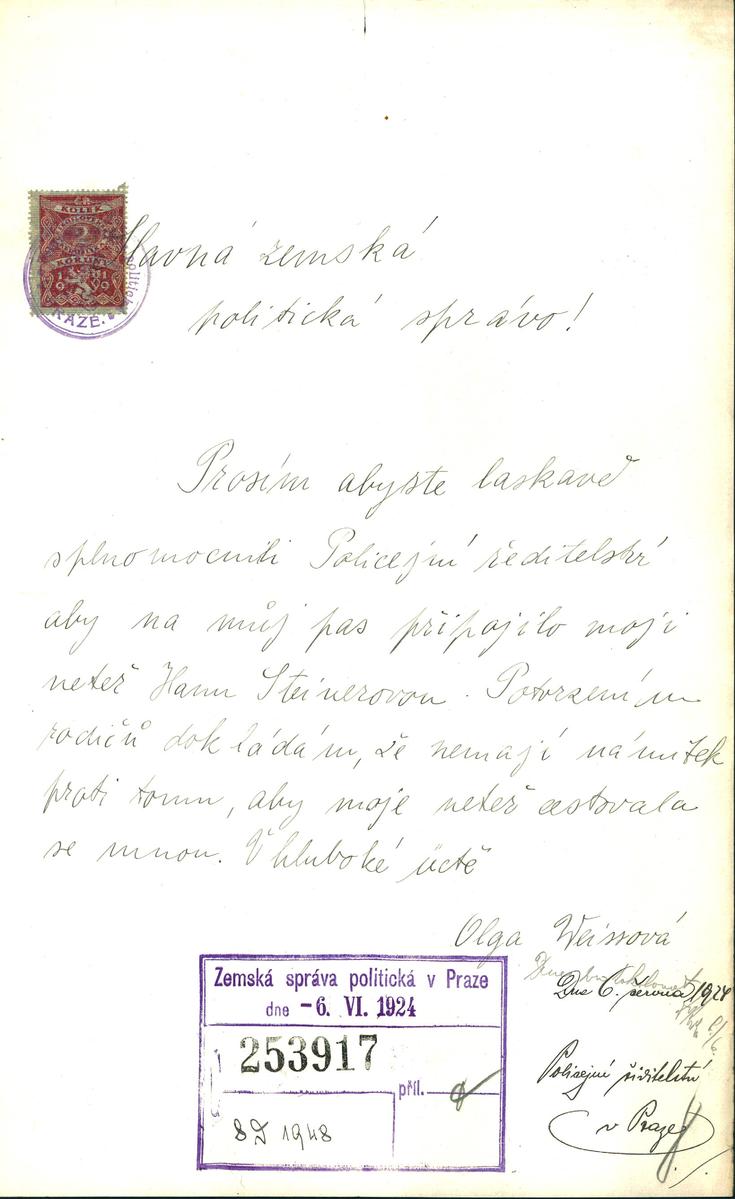 KOLEK
2
KORUNY
1919
PRAZE.
Slavná zemská
politická správo!
Prosím abyste laskavě
splnomocnili Policejní ředitelství
aby na můj pas připojilo moji
neteř Hanu Steinerovou. Potvrzením
rodičů dokládám, že nemají námitek
proti tomu, aby moje neteř cestovala
se mnou. V hluboké úctě
Olga Weissová
Dne 6. června 1924
Policejní ředitelství
v Praze
Zemská správa politická v Praze
dne -6. VI. 1924
253917
příl.
8D 1948